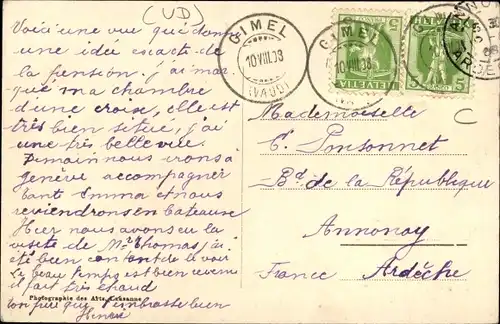 (UD)
Voici une vue qui donne
une idée exacte de
la pension. j'ai mar-
qué ma chambre
d'une croix, elle est
très bien située, j'ai
une très belle vue.
Demain nous irons à
genève accompagner
tant Emma et nous
reviendrons en bateau
Hier nous avons eu la
visite de Mr Thomas, j'ai
été bien content de le voir
Le beau temps est bien
il fait très chaud
ton qui t'embrasse bien
Photographie des Arts, Lausanne
GIMEL
10 VIII 08
(VAUD)
GIMEL
10 VIII 08
HELVETIA
5
HELVETIA
5
Mademoiselle
Bd de la République
Annonay
France Ardèche
C